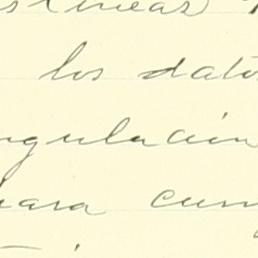 lineas
los datos
ngulación
para cum